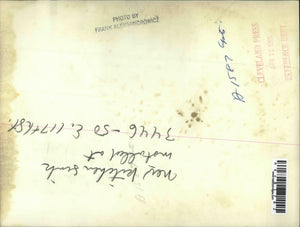 PHOTO BY
FRANK ALEKSANDROWICZ
CLEVELAND PRESS
REFERENCE DEPT
new kitchen sink
installed at
3446-50 E. 117th St.